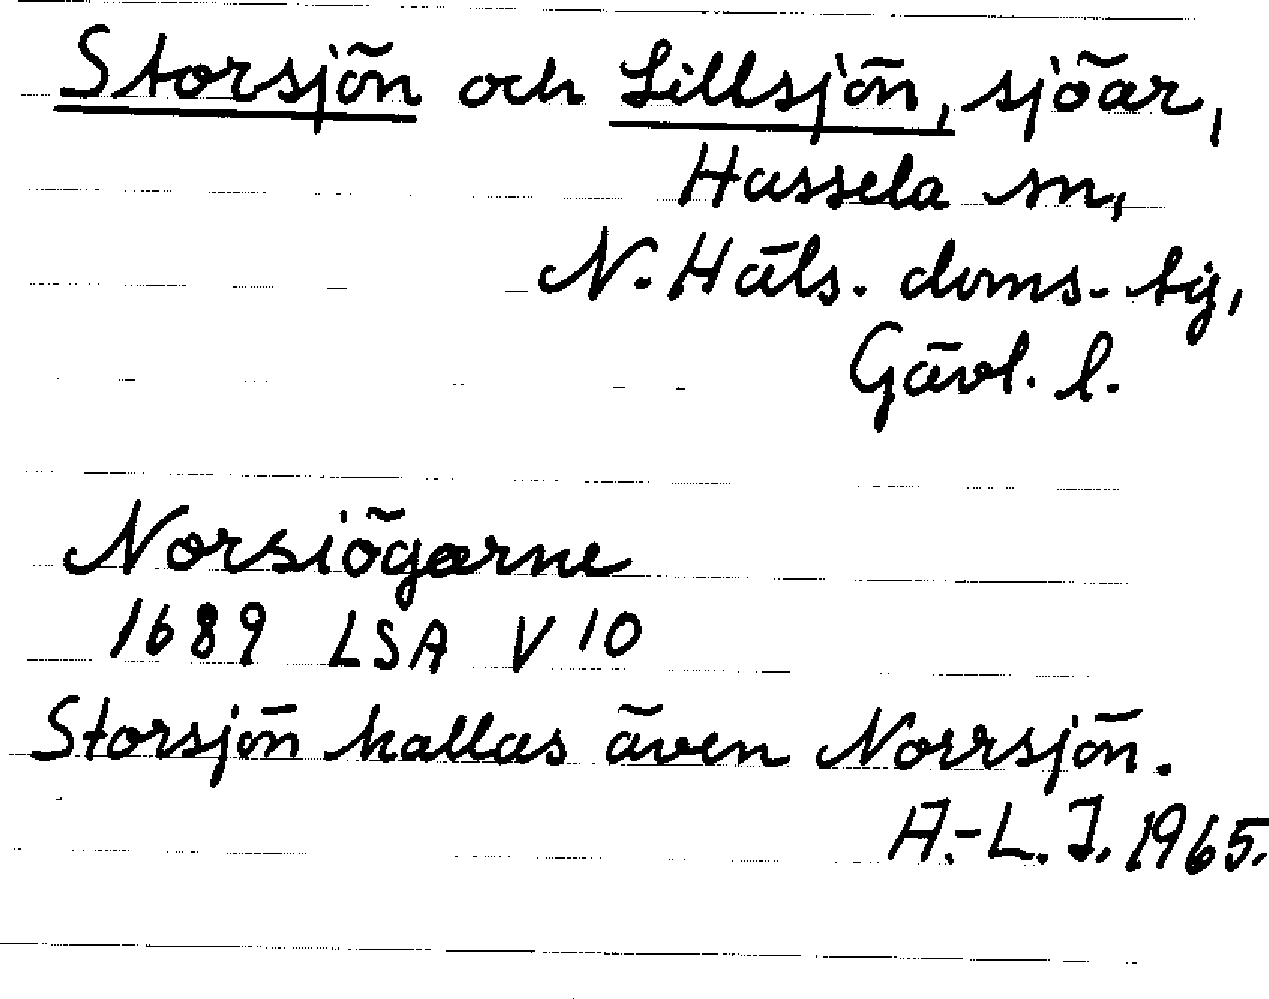 Storsjön och Lillsjön, sjöar,
Hassela sn,
N. Häls. doms-tg,
Gävl. l.
Norsiögarne
1689 LSA V 10
Storsjön kallas även Norrsjön.
A.-L. J. 1965.